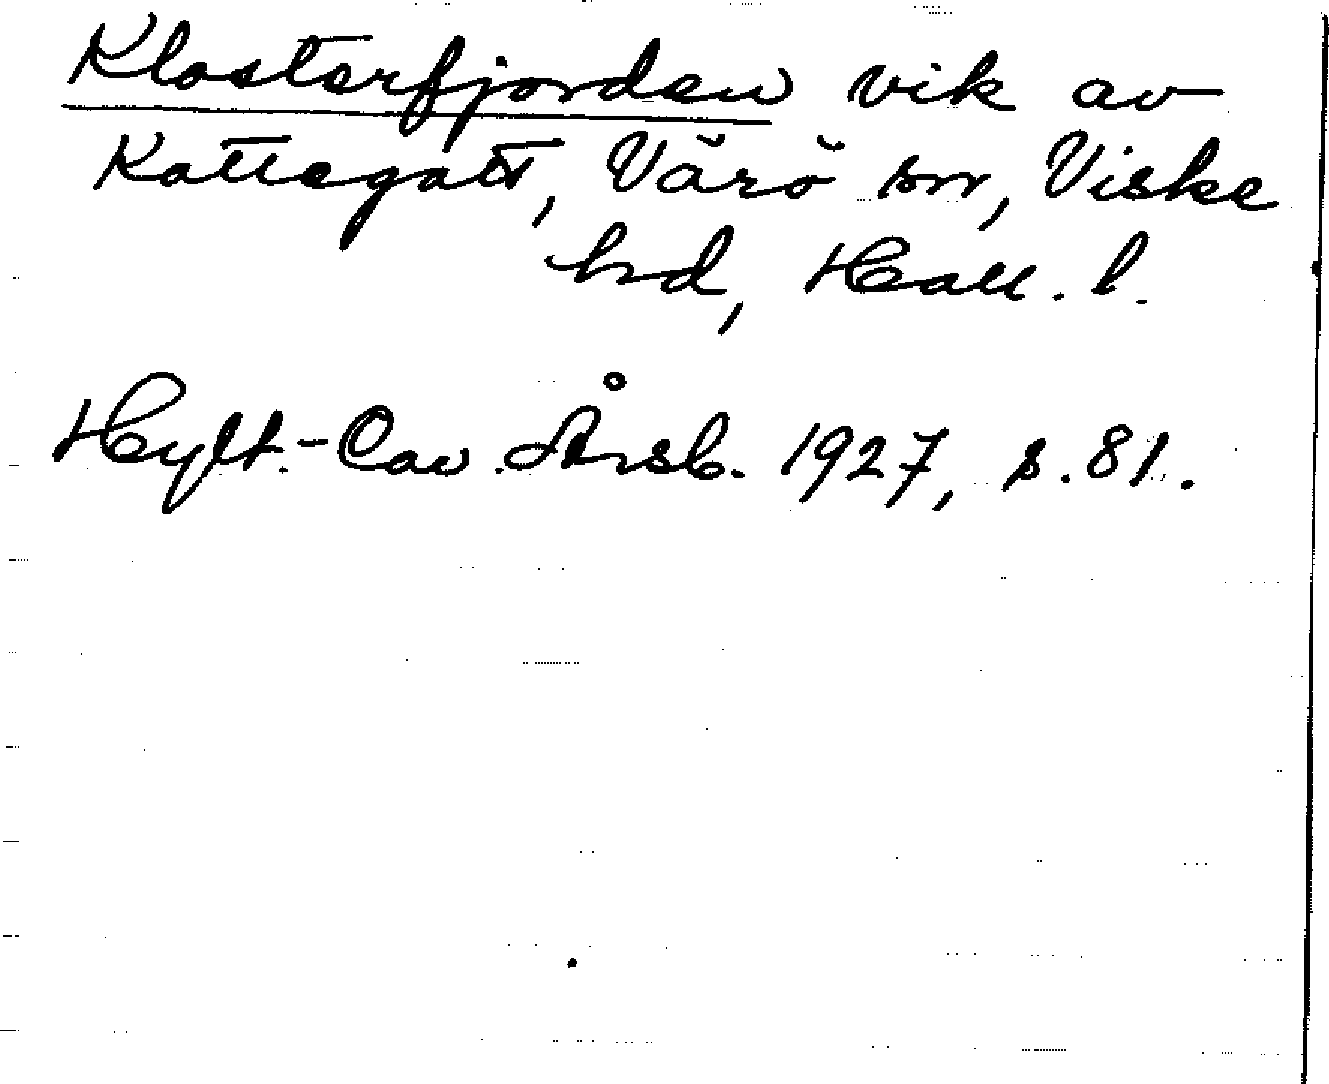 Klosterfjorden vik av
Kattegatt, Värö sn, Viske
hd, Hall. l.
Hylt.-Cav. Årsb. 1927, s. 81.